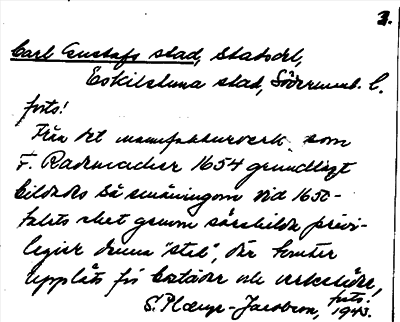 3.
Carl Gustafs stad, Stadsdel,
Eskilstuna stad, Söderman. l.
forts!
Från det manufakturverk som
F. Rademacher 1654 grundlagt
bildades så småningom vid 1650-
talets slut genom särskilda privi-
legier denna "stad", där tomter
uppläts för bostäder och verkstäder,
forts!
S. Pleyer-Jacobson, 1943.